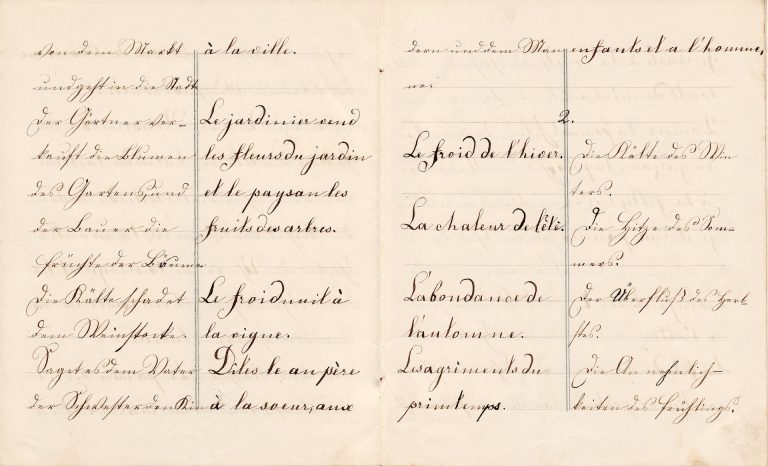 von dem Markt
und geht in die Stadt
Der Gärtner ver-
kauft die Blumen
des Gartens, und
der Bauer die
Früchte der Bäume
Die Kälte schadet
dem Weinstocke.
Saget es dem Vater
der Schwester den Kin
à la ville.
Le jardinier vend
les fleurs du jardin
et le paysan les
fruits des arbres.
Le froid nuit à
la vigne.
Dites le au père
à la soeur, aux
dern und dem Man
ne.
enfants et a l'homme.
2.
Le froid de l'hiver.
La chaleur de l'été.
L'abondance de
l'automne.
Les agriments du
printemps.
Die Kälte des Win
ters.
Die Hitze des Som-
mers.
Der Überfluß des Herb-
stes.
Die Annehmlich-
keiten des Frühlings.